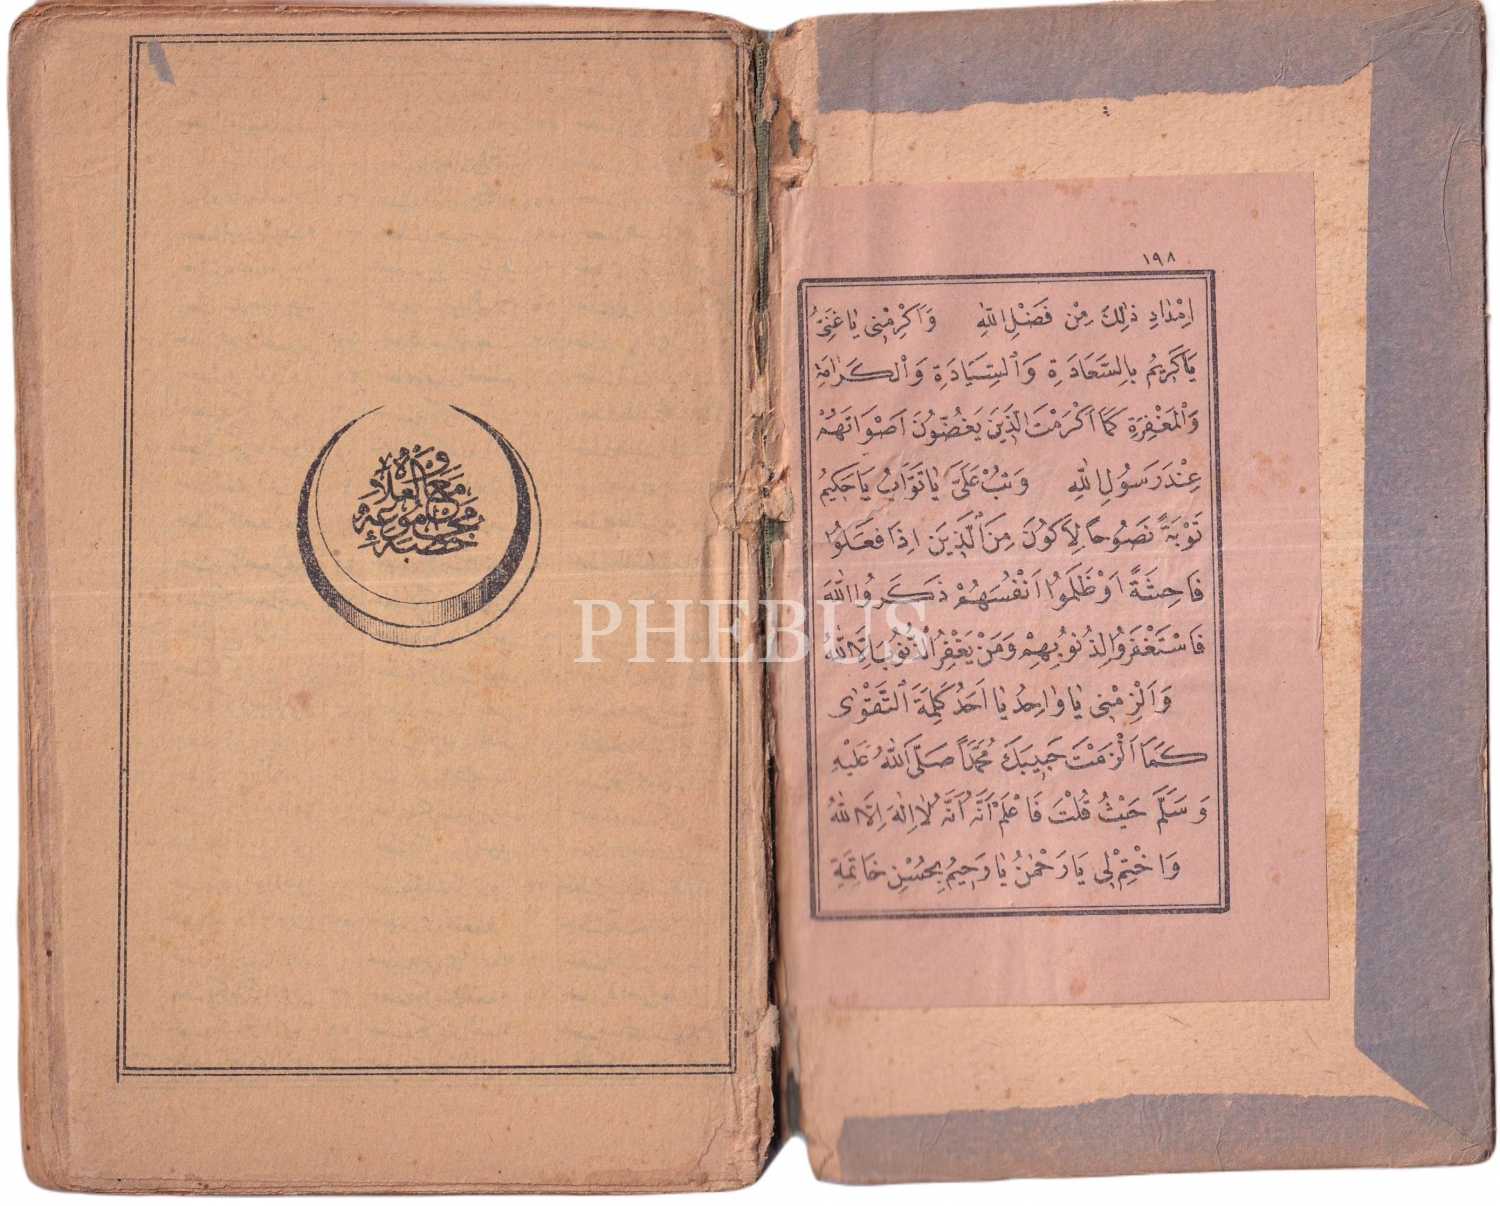 ١٩٨
اِمْدَادِ ذٰلِكَ مِنْ فَضْلِ اللهِ وَاَكْرِمْنِى يَا غَنِىُّ
يَا كَرِيمُ بِالسَّعَادَةِ وَالسِّيَادَةِ وَالْكَرَامَةِ
وَالْمَغْفِرَةِ كَمَا اَكْرَمْتَ الَّذِينَ يَغُضُّونَ اَصْوَاتَهُمْ
عِنْدَ رَسُولِ اللهِ وَتُبْ عَلَىَّ يَا تَوَّابُ يَا حَكِيمُ
تَوْبَةً نَصُوحًا لِاَكُونَ مِنَ الَّذِينَ اِذَا فَعَلُوا
فَاحِشَةً اَوْ ظَلَمُوا اَنْفُسَهُمْ ذَكَرُوا اللهَ
فَاسْتَغْفَرُوا لِذُنُوبِهِمْ وَمَنْ يَغْفِرُ الذُّنُوبَ اِلَّا اللهُ
وَاَلْزِمْنِى يَا وَاحِدُ يَا اَحَدُ كَلِمَةَ التَّقْوٰى
كَمَا اَلْزَمْتَ حَبِيبَكَ مُحَمَّدًا صَلَّى اللهُ عَلَيْهِ
وَسَلَّمَ حَيْثُ قُلْتَ فَاعْلَمْ اَنَّهُ اَنَّهُ لَا اِلٰهَ اِلَّا اللهُ
وَاخْتِمْ لِى يَا رَحْمٰنُ يَا رَحِيمُ بِحُسْنِ خَاتِمَةِ
مجموعهٔ
خطبهٔ
PHEBUS